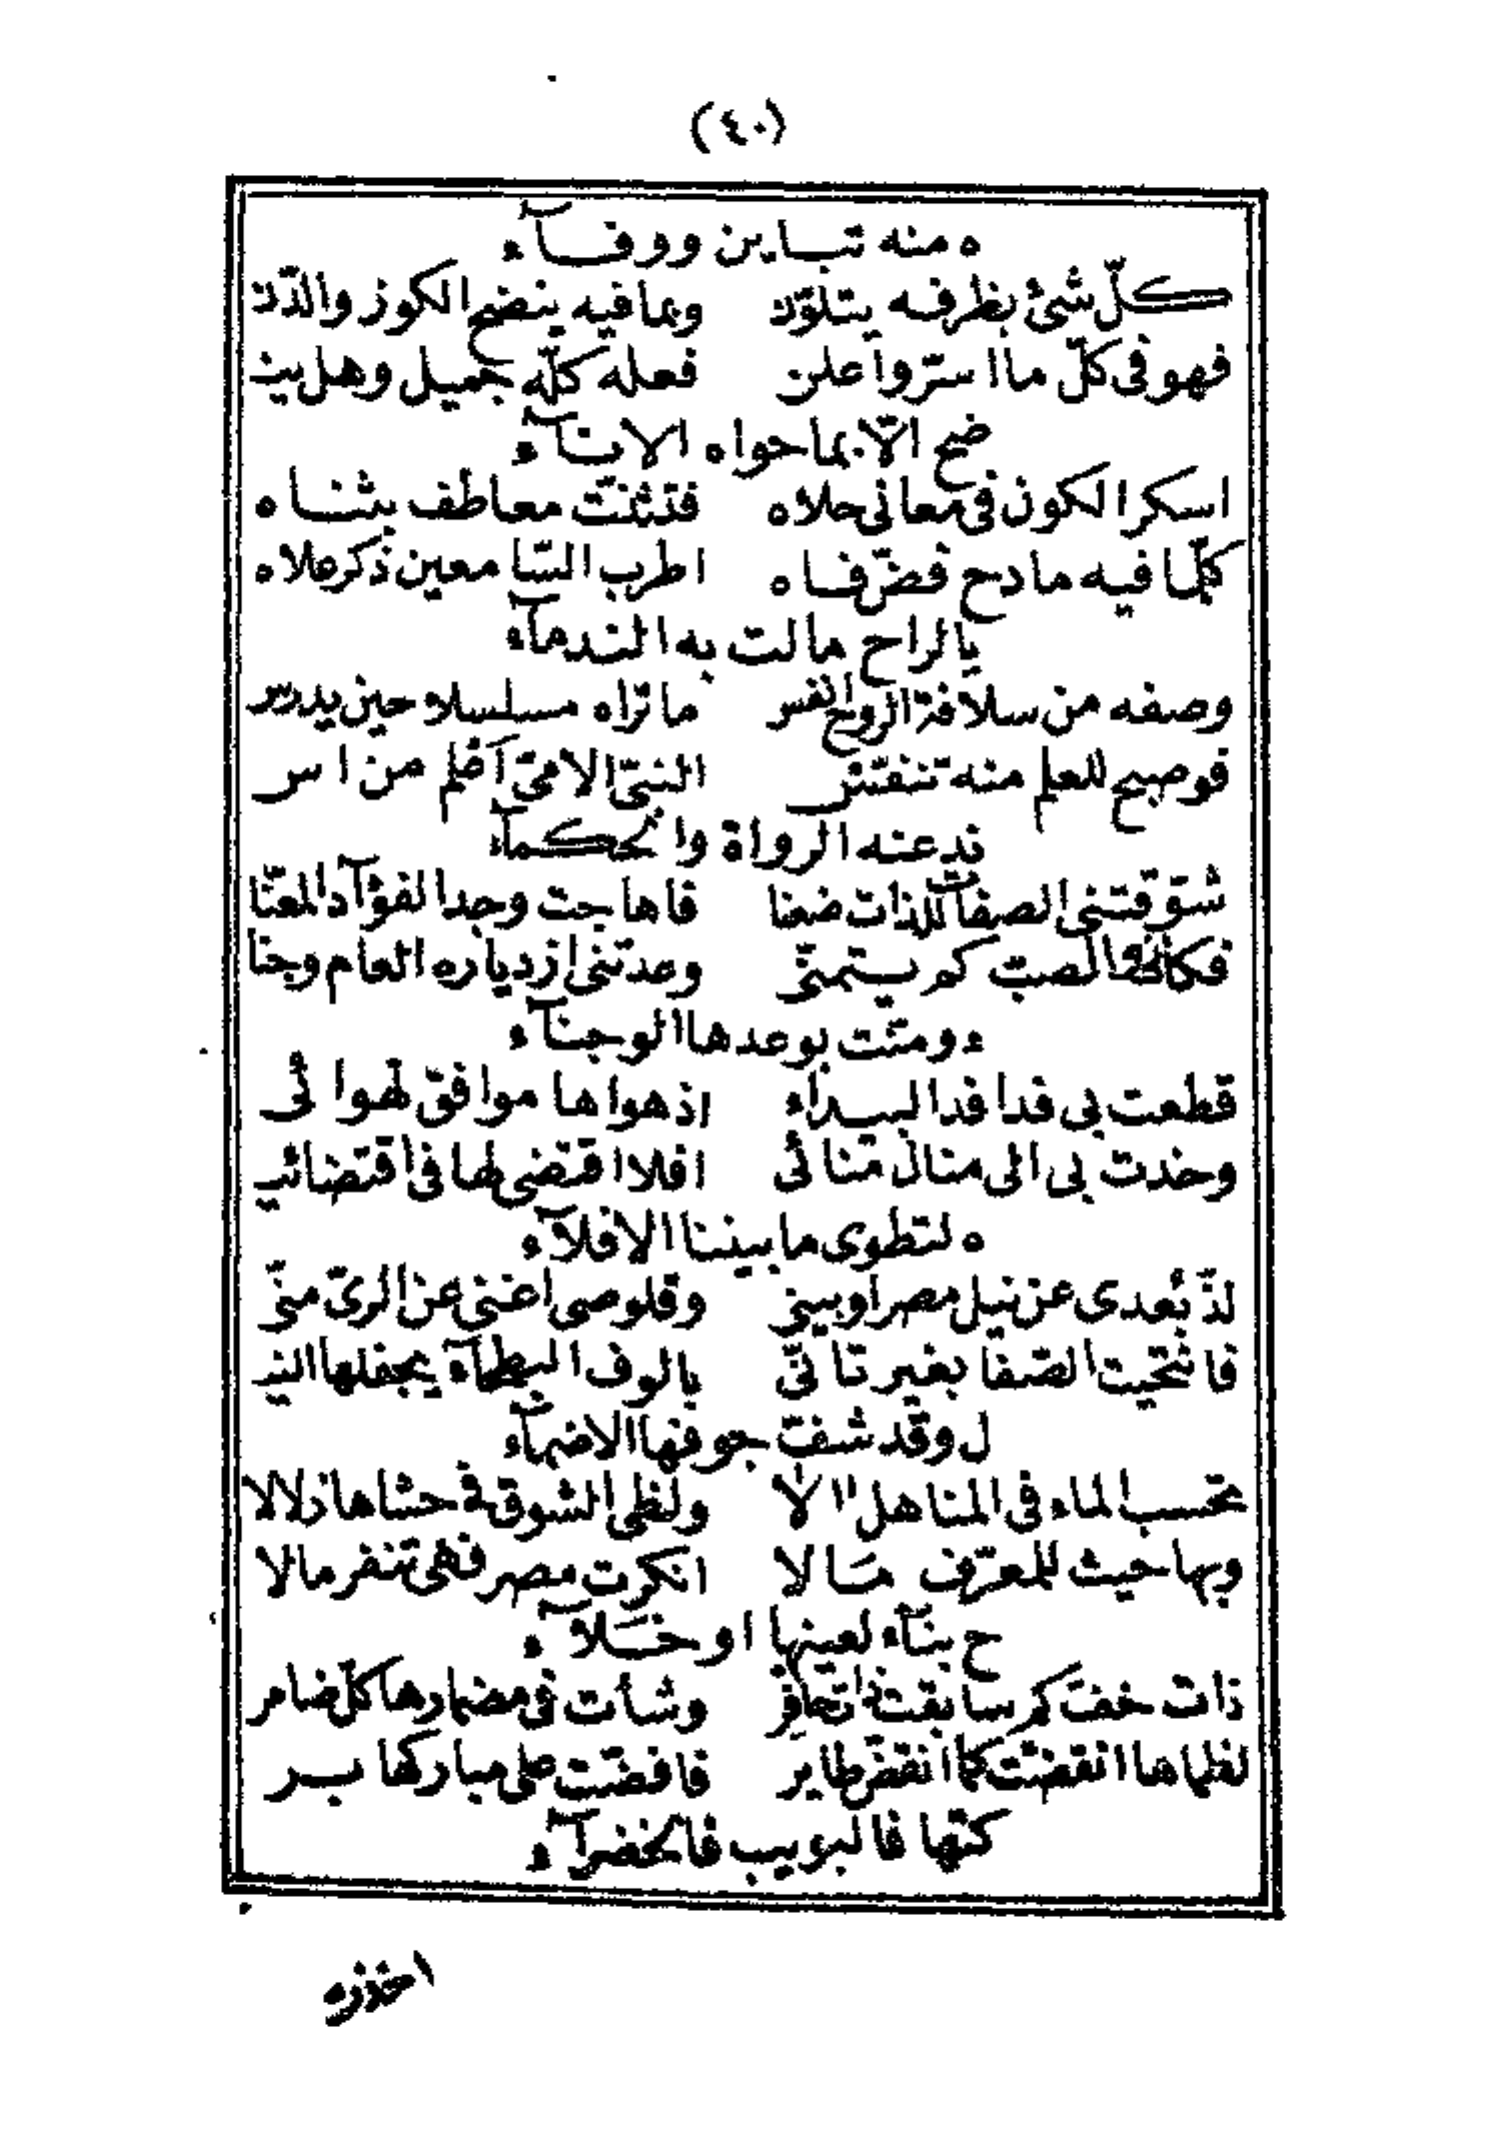 (٤٠)
ه منه تباين ووفآء
كلّ شئ بظرفه يتلوّن وبما فيه ينضح الكوز والدّن
فهو فى كلّ ما اسرّ واعلن فعله كلّه جميل وهل ين
ضح الّا بما حواه الانآء
اسكر الكون فى معانى حلاه فتثنّت معاطف بثناه
كلّما فيه مادح فضّ فاه اطرب السّامعين ذكر علاه
يا لراح مالت به الندمآء
وصفه من سلافة الروح انفس ما تراه مسلسلا حين يدرس
فوصبح للعلم منه تنفّس النبىّ الامىّ اعلم من اس
ند عنه الرواة والحكمآء
شوّقتنى الصفات للذات ضمنا فاهاجت وجد الفؤآد المعنّا
فكأنّ الصبّ كم يتمنّى وعدتنى ازدياره العام وجنا
ء ومنّت بوعدها الوجنآء
قطعت بى فدافد البيدآء اذ هواها موافق لهوائى
وخدت بى الى منال تنائى افلا اقتضى لها فى اقتضائي
ه لتطوى ما بيننا الافلآء
لذّ بُعدى عن نيل مصر وبينى وقلوصى اغنى عن الرىّ منّى
فانتحيت الصّفا بغير تانّى بالوف البطحآء يجفلها الني
ل وقد شفّ جوفها الاضمآء
تحسب الماء فى المناهل الا ولظى الشوق فى حشاها زلالا
وبها حيث للمعرّف مَالا انكرت مصر فهى تنفر مالا
ح بنآء لعينها او خَلآء
ذات خفّ كم سابقت ذات حافر وشأت فى مضمارها كلّ ضامر
لظماها انقضّت كما انقضّ طاير فافضّت على مباركها بر
كتها فالبويب فالخضرآء
اخذره